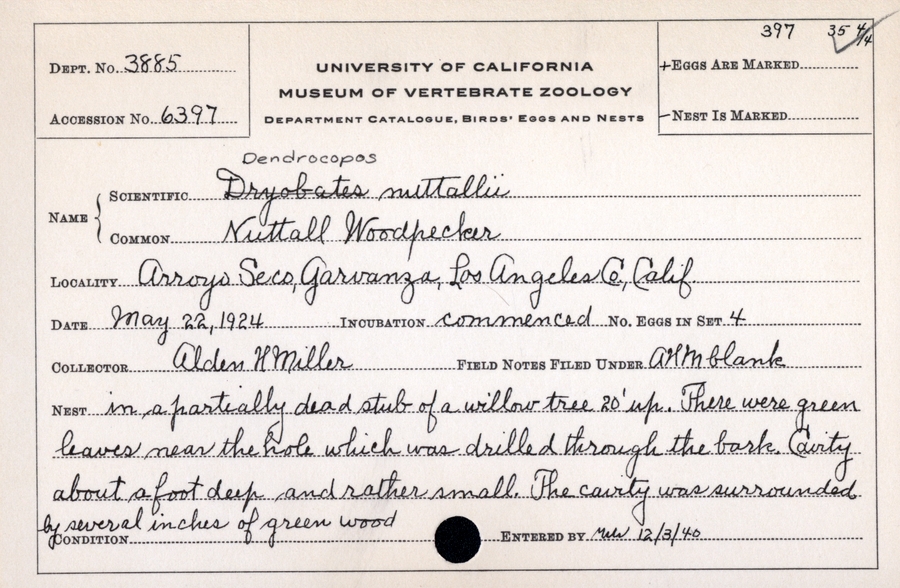 397 35 4/4
DEPT. No. 3885
UNIVERSITY OF CALIFORNIA
+EGGS ARE MARKED
MUSEUM OF VERTEBRATE ZOOLOGY
ACCESSION No. 6397
DEPARTMENT CATALOGUE, BIRDS' EGGS AND NESTS
-NEST IS MARKED
Dendrocopos
NAME { SCIENTIFIC Dryobates nuttallii
COMMON Nuttall Woodpecker
LOCALITY Arroyo Seco, Garvanza, Los Angeles Co., Calif
DATE May 22, 1924 INCUBATION commenced No. EGGS IN SET 4
COLLECTOR Alden H Miller FIELD NOTES FILED UNDER AHM blank
NEST in a partially dead stub of a willow tree 20' up. There were green
leaves near the hole which was drilled through the bark. Cavity
about a foot deep and rather small. The cavity was surrounded
by several inches of green wood
CONDITION ENTERED BY 12/3/40